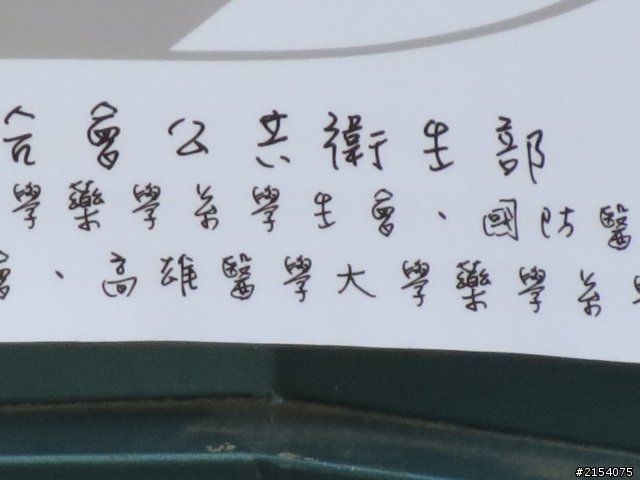 合會公共衛生部
學藥學系學生會、國防醫
會、高雄醫學大學藥學系
#2154075